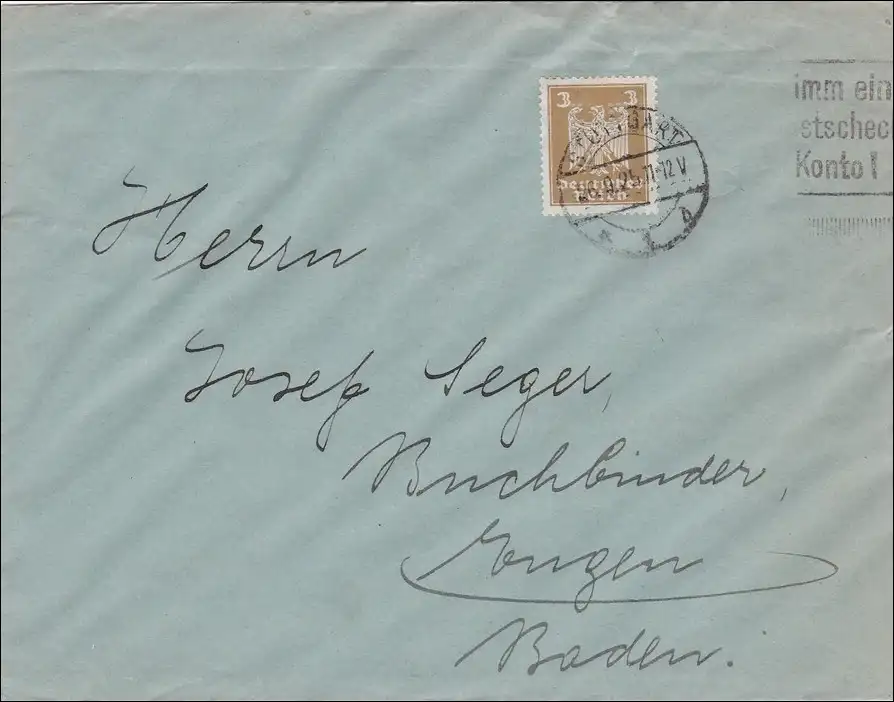 3 3
Deutsches
Reich
STUTTGART
26.9.25.11-12V
imm ein
stschec
Konto!
Herrn
Josef Seger,
Buchbinder,
Engen
Baden.